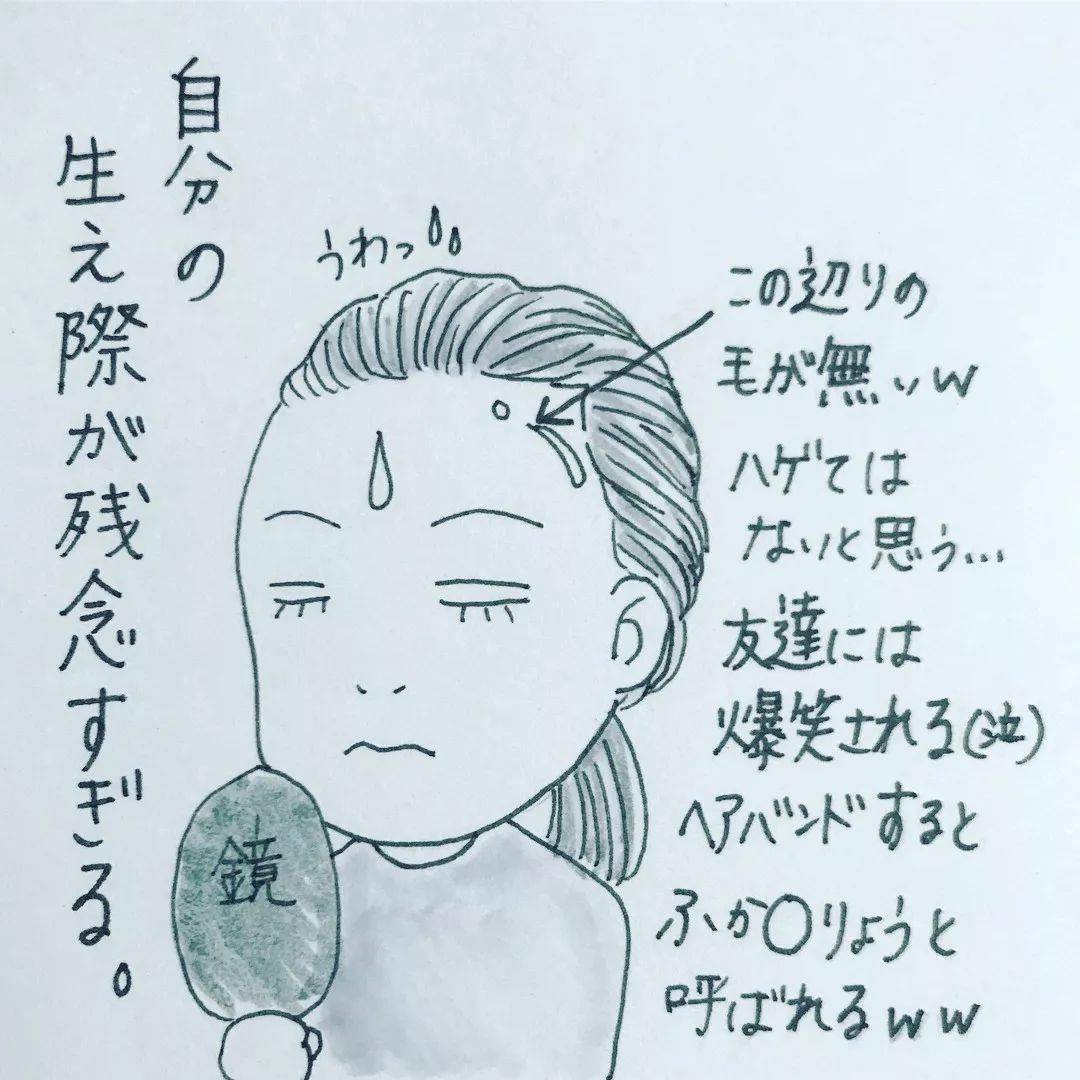 自分の
生え際が残念すぎる。
うわっ
この辺りの
毛が無いw
ハゲては
ないと思う…
友達には
爆笑される(泣)
ヘアバンドすると
ふか〇りょうと
呼ばれるww
鏡